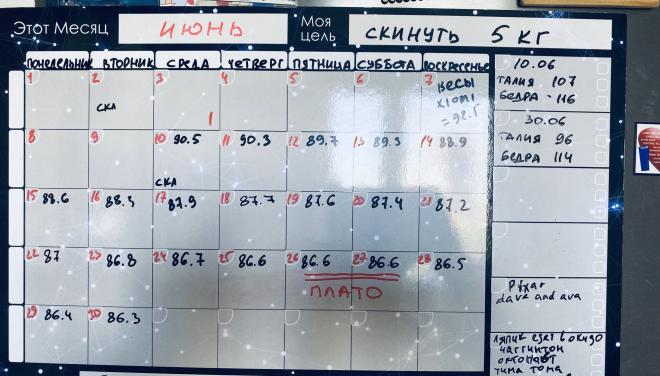 Этот Месяц ИЮНЬ Моя цель СКИНУТЬ 5 КГ
ПОНЕДЕЛЬНИК ВТОРНИК СРЕДА ЧЕТВЕРГ ПЯТНИЦА СУББОТА ВОСКРЕСЕНЬЕ
1 2 3 4 5 6 7
СКЛ 1 ВЕСЫ
XIOMI
= 92.5
8 9 10 90.5 11 90.3 12 89.7 13 89.3 14 88.9
СКЛ
15 88.6 16 88.3 17 87.9 18 87.7 19 87.6 20 87.4 21 87.2
22 87 23 86.8 24 86.7 25 86.6 26 86.6 27 86.6 28 86.5
ПЛАТО
29 86.4 30 86.3
10.06
ТАЛИЯ 107
БЕДРА - 116
30.06
ТАЛИЯ 96
БЕДРА 114
Рухар
dave and ava
чаггингтон
октонавт
тима тома